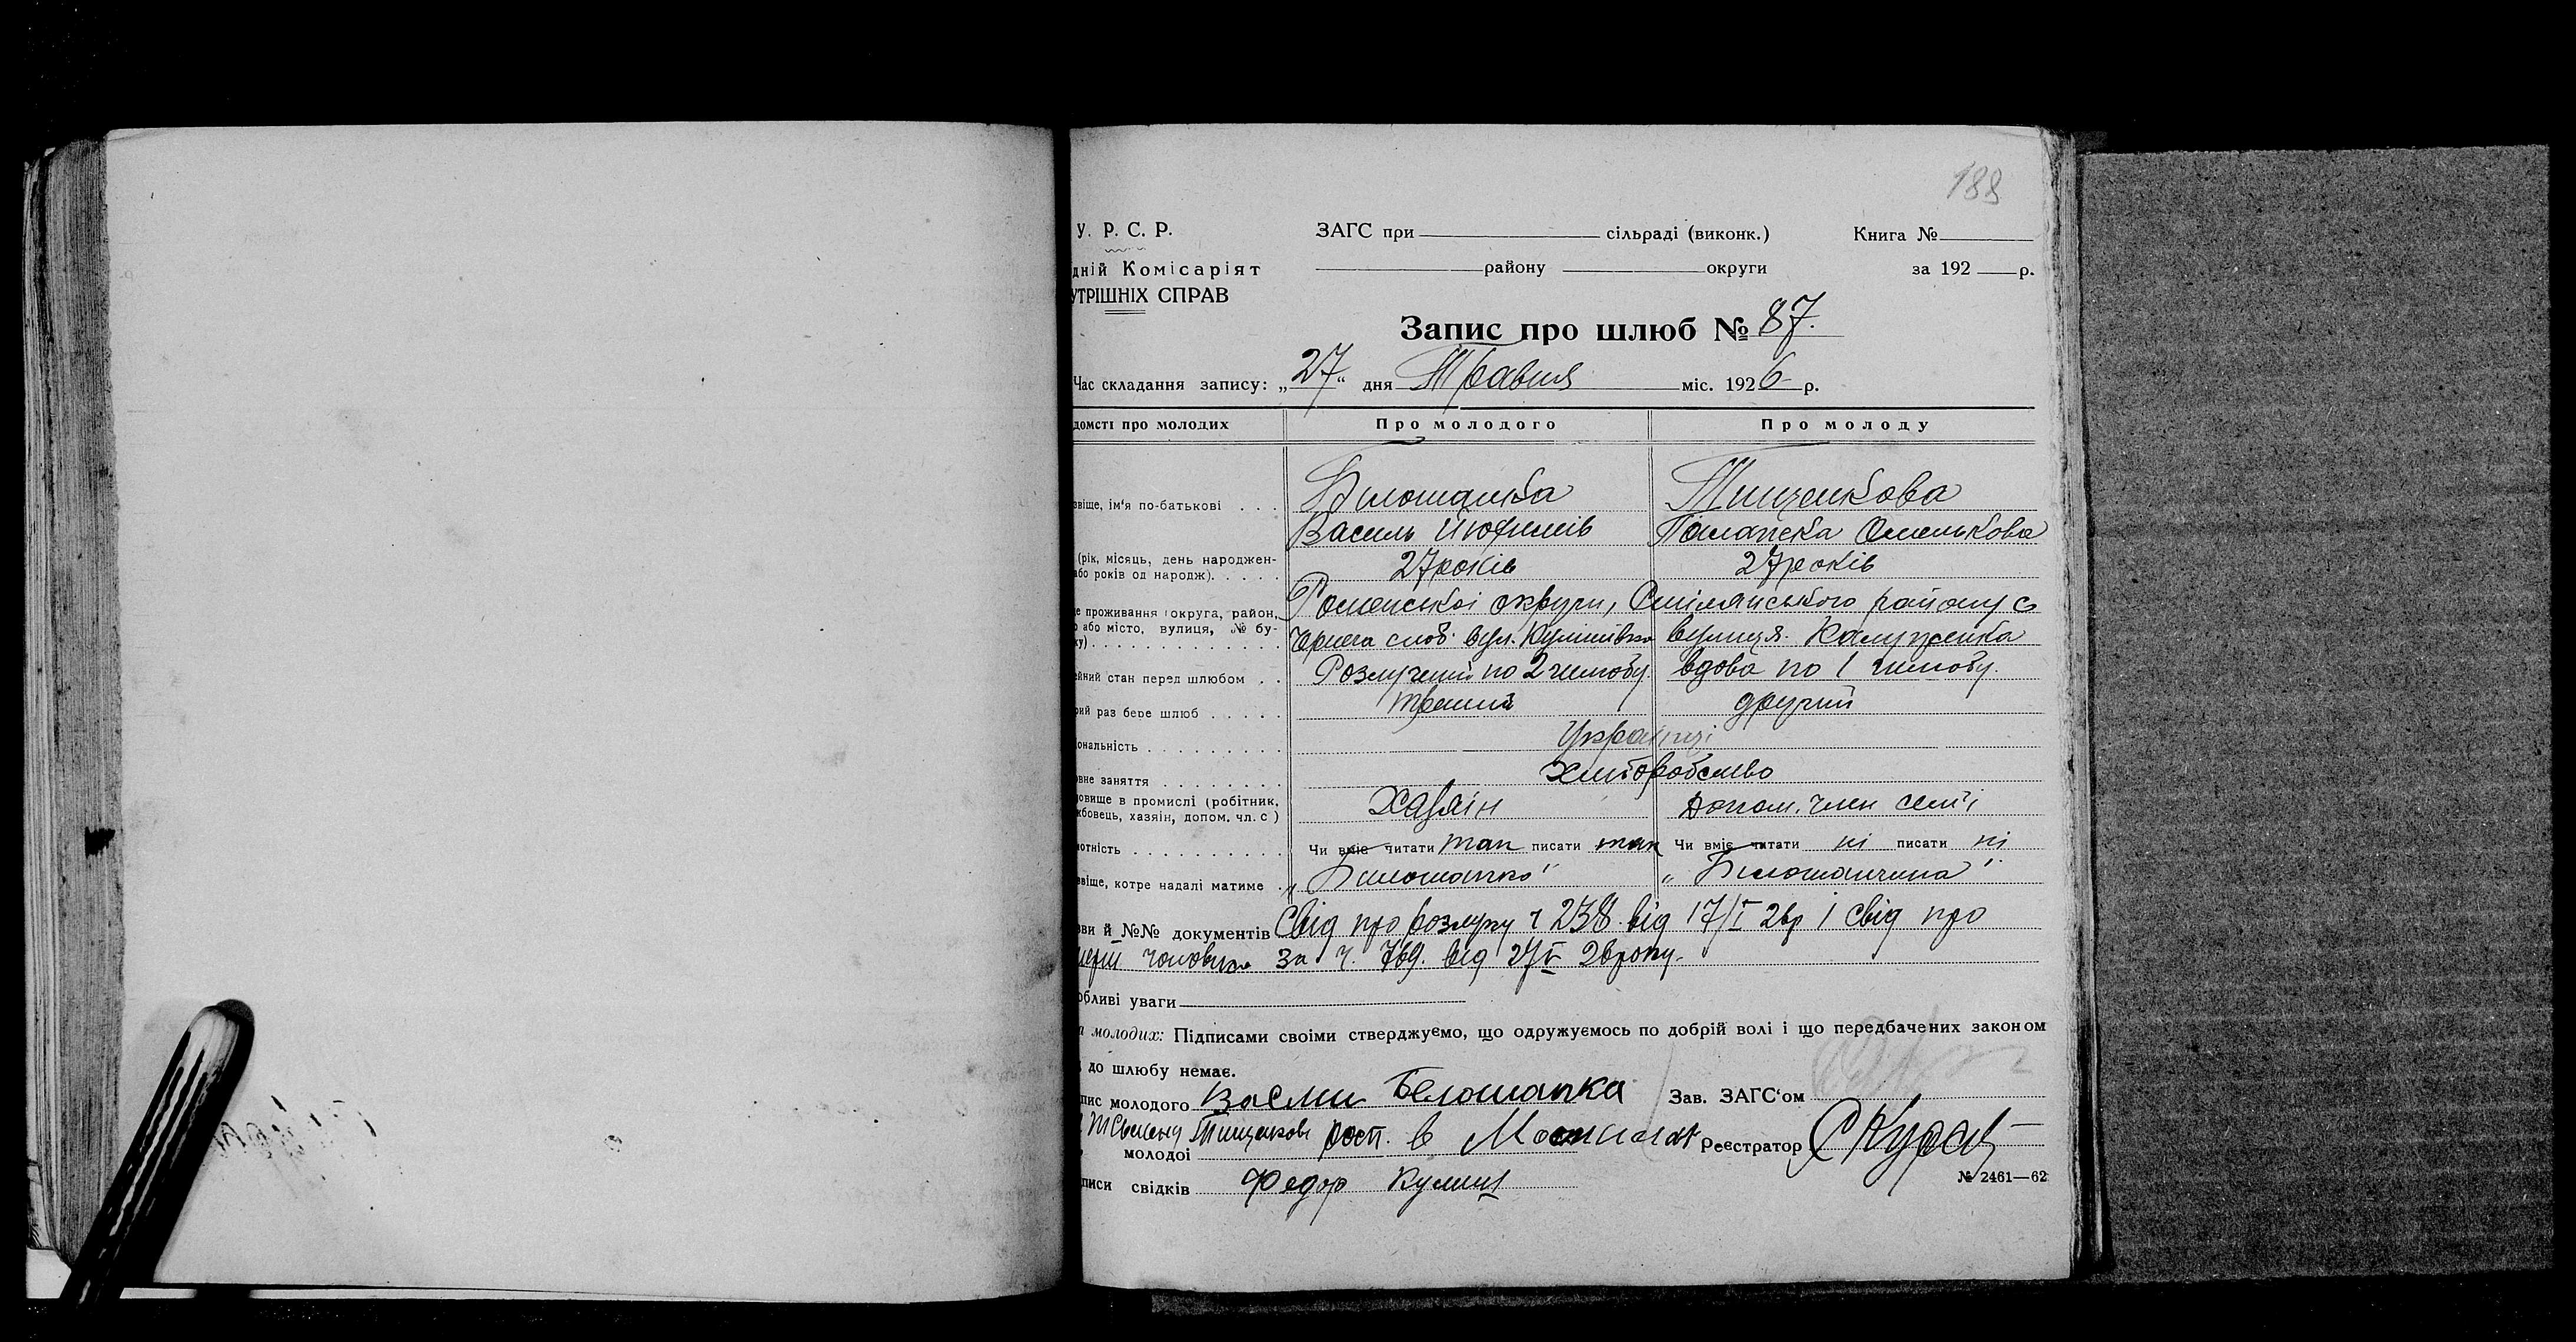 188
У. Р. С. Р. ЗАГС при сільраді (виконк.) Книга №
дній Комісаріят району округи за 192 р.
УТРІШНІХ СПРАВ
Запис про шлюб № 87.
Час складання запису: „27“ дня Травня міс. 1926 р.
домсті про молодих Про молодого Про молоду
Білошапка Тищенкова
звіще, ім'я по-батькові . . .
Василь Йюхимів Палажка Омелькова
(рік, місяць, день народжен-
або років од народж). . . . . 27 років 27 років
е проживання (округа, район, Роменської округи, Смілянського району с
о або місто, вулиця, № бу-
ку) . . . слоб. вул. Кулішівка вулиця.
ейний стан перед шлюбом . . Розлучений по 2 шлюбу вдова по 1 шлюбу.
рий раз бере шлюб . . . . . третий другий
іональність . . . . . . . . . Українці
овне заняття . . . . . . . . Хліборобство
довище в промислі (робітник,
жбовець, хазяін, допом. чл. с ) Хазяін допом. член семі
мотність . . . . . . . . . . Чи вміє читати так писати так Чи вміє читати ні писати ні
звіще, котре надалі матиме . „Білошапко" „Білошапчина"
зви й №№ документів Свід про розлуку ч 238 від 17/I 26р і свід про
мерті чоловіка за ч. 769. від 27/V 26 року.
обливі уваги
п молодих: Підписами своіми стверджуємо, що одружуємось по добрій волі і що передбачених законом
до шлюбу немає.
пис молодого Васили Белошапка Зав. ЗАГС'ом
Тищенкові росп.
молодоі Реєстратор
писи свідків Федор Кулиш
№ 2461—62